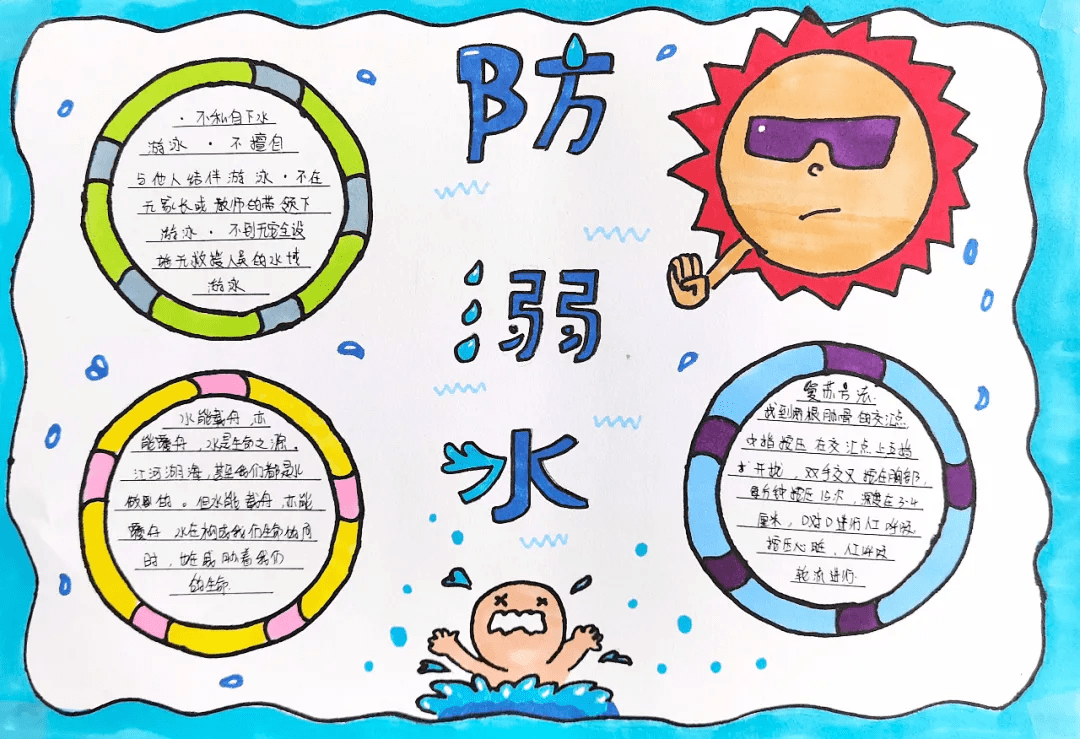 防
溺
水
· 不私自下水
游泳 · 不擅自
与他人结伴游泳 · 不在
无家长或教师的带领下
游泳 · 不到无安全设
施无救援人员的水域
游泳
水能载舟,亦
能覆舟,水是生命之源。
江河湖海,甚至我们都是水
做的。但水能载舟,亦能
覆舟 水在构成我们生命的同
时,也在威胁着我们
的生命.
复苏方法:
找到两根肋骨的交汇点
中指按压 在交汇点上五指
扩开找,双手交叉按在胸部,
每分钟按压15次,深度在3-4
厘米,口对口进行人工呼吸
按压心脏,人工呼吸
轮流进行.